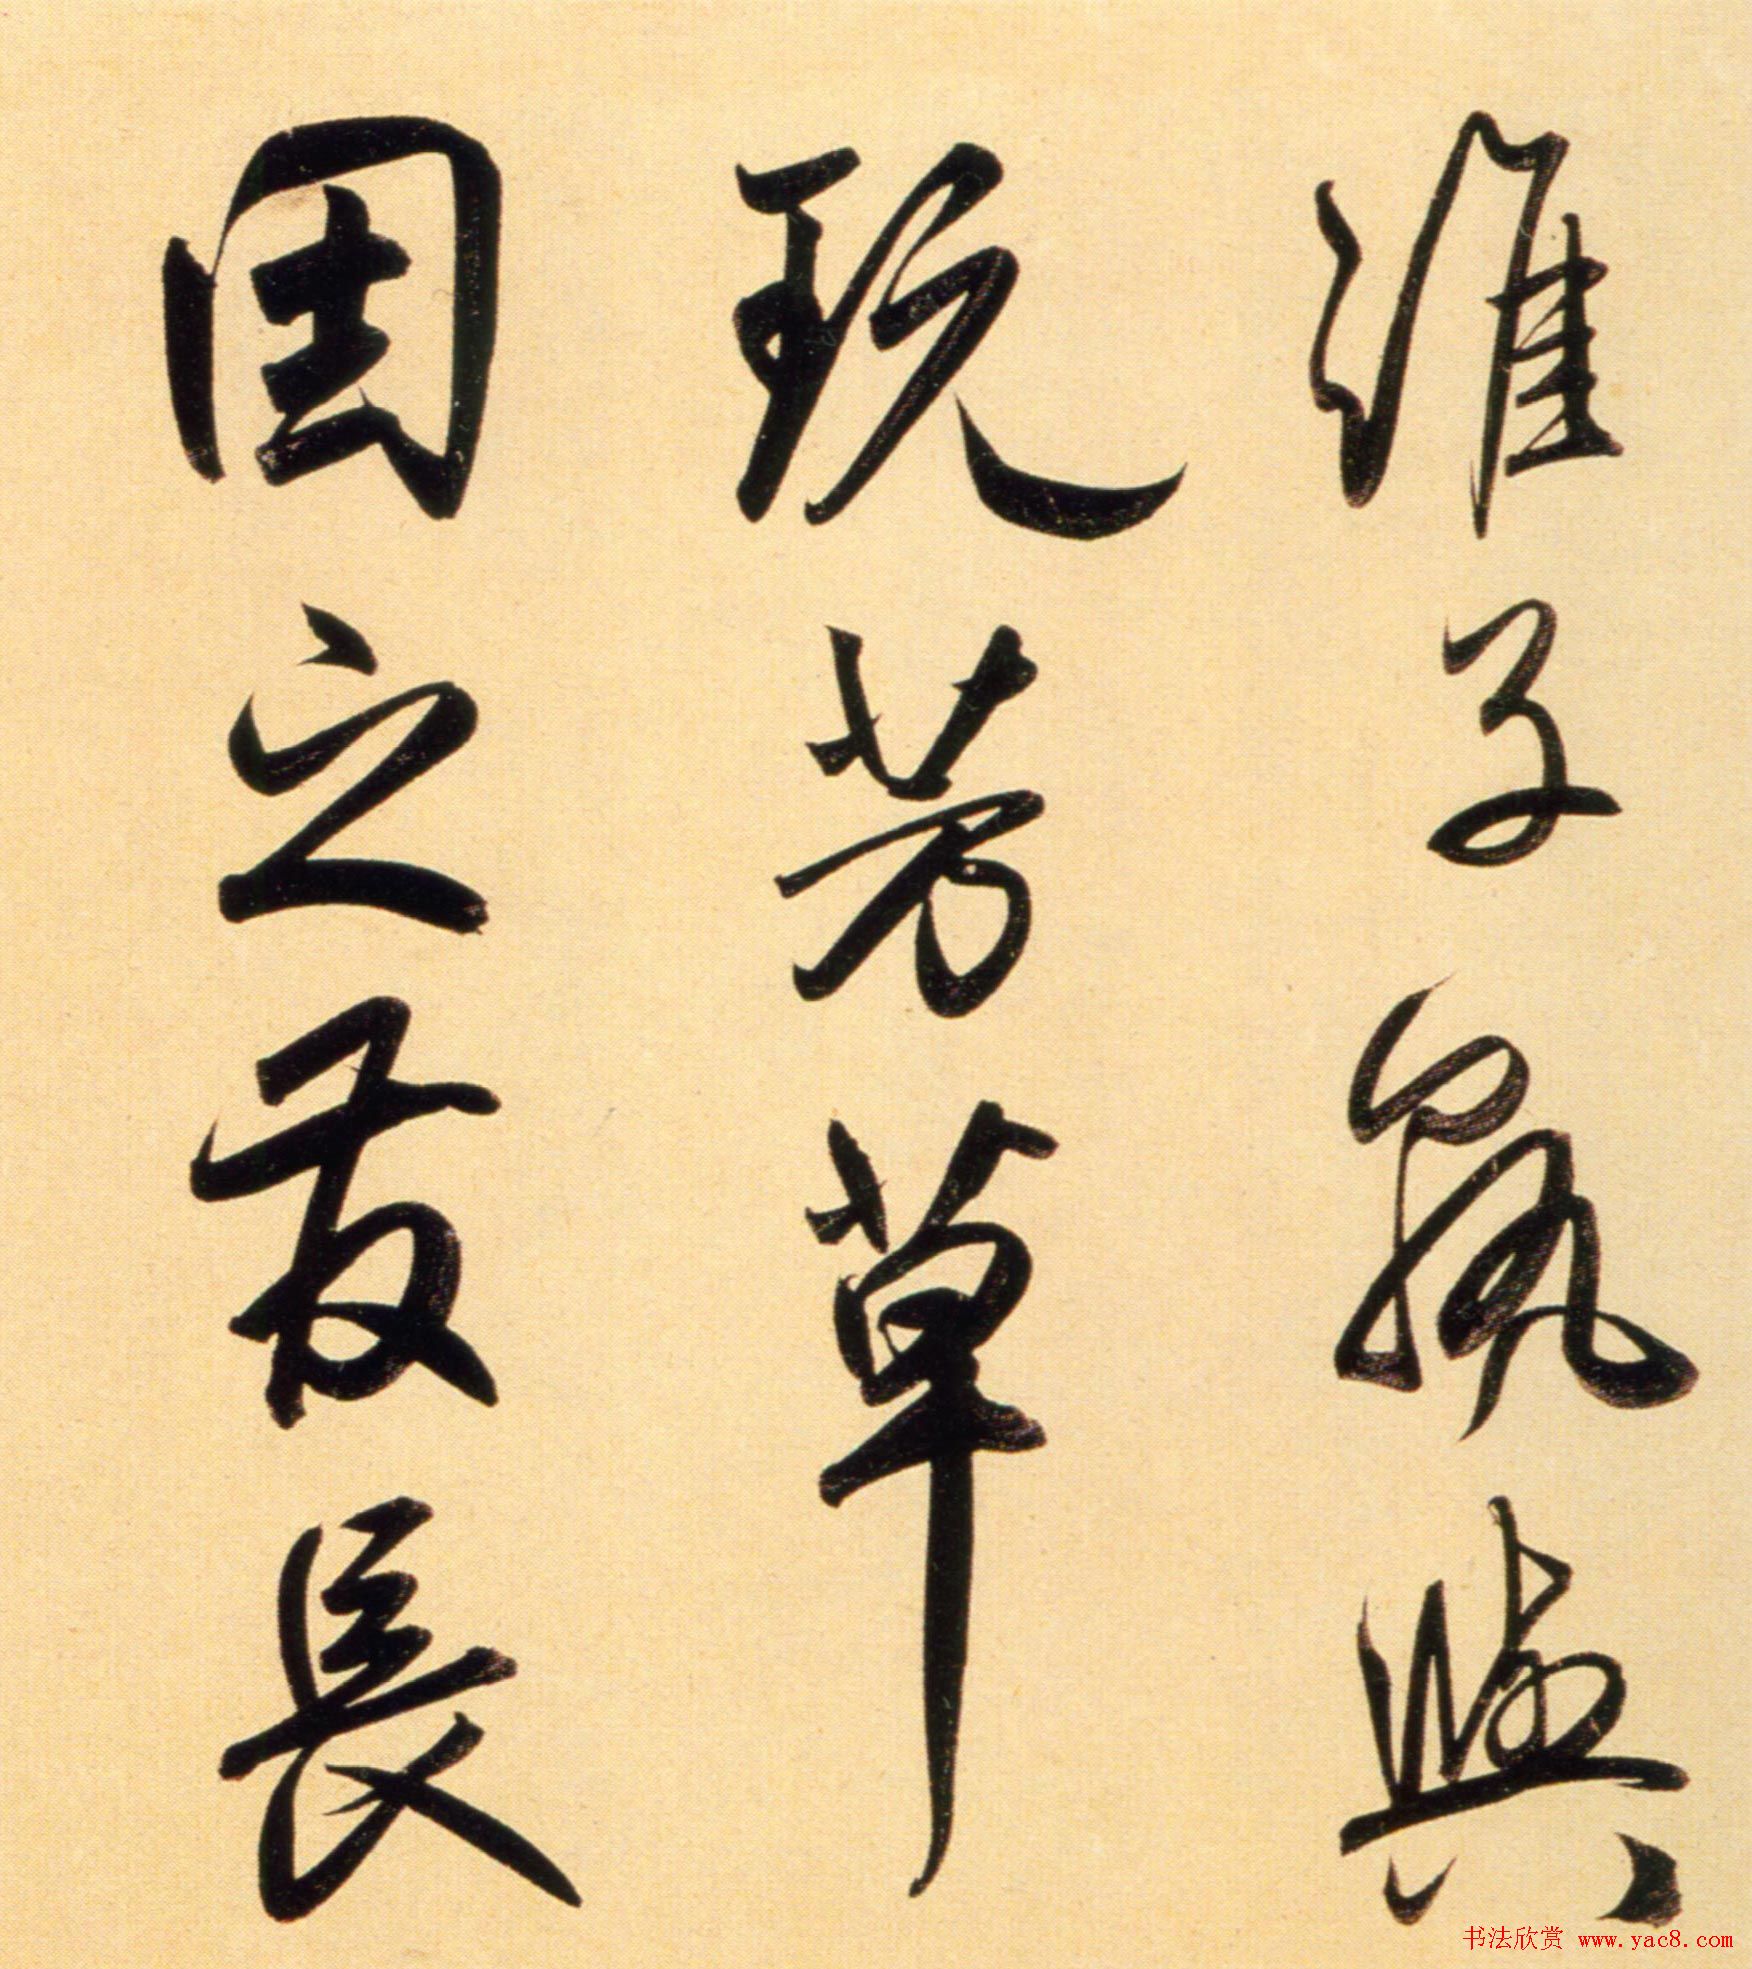 子孰與
玩芳草
因之發長
书法欣赏 www.yac8.com